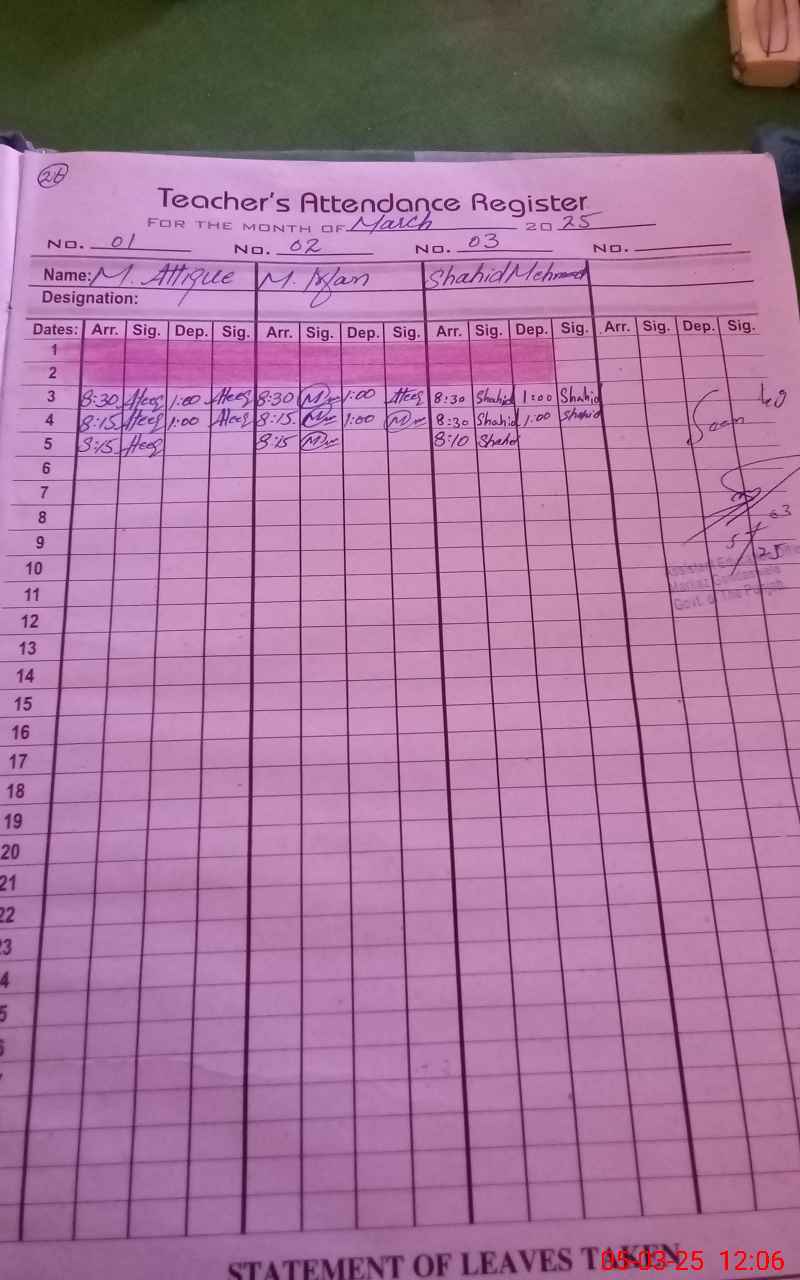 26
Teacher's Attendance Register
FOR THE MONTH OF March 2025
No. 01 No. 02 No. 03 No.
Name: M. Attique M. Irfan Shahid Mehmood
Designation:
Dates: Arr. Sig. Dep. Sig. Arr. Sig. Dep. Sig. Arr. Sig. Dep. Sig. Arr. Sig. Dep. Sig.
1
2
3 8:30 Ateeq 1:00 Ateeq 8:30 1:00 Ateeq 8:30 Shahid 1:00 Shahid
4 8:15 Ateeq 1:00 Ateeq 8:15 1:00 8:30 Shahid 1:00 Shahid
5 8:15 Ateeq 8:15 8:10 Shahid
Seen
6
7
8
9
10
11
12
13
14
15
16
17
18
19
20
21
22
3
4
5
Assistant Education
Markaz
Govt. of The Punjab
STATEMENT OF LEAVES TAKEN
05-03-25 12:06